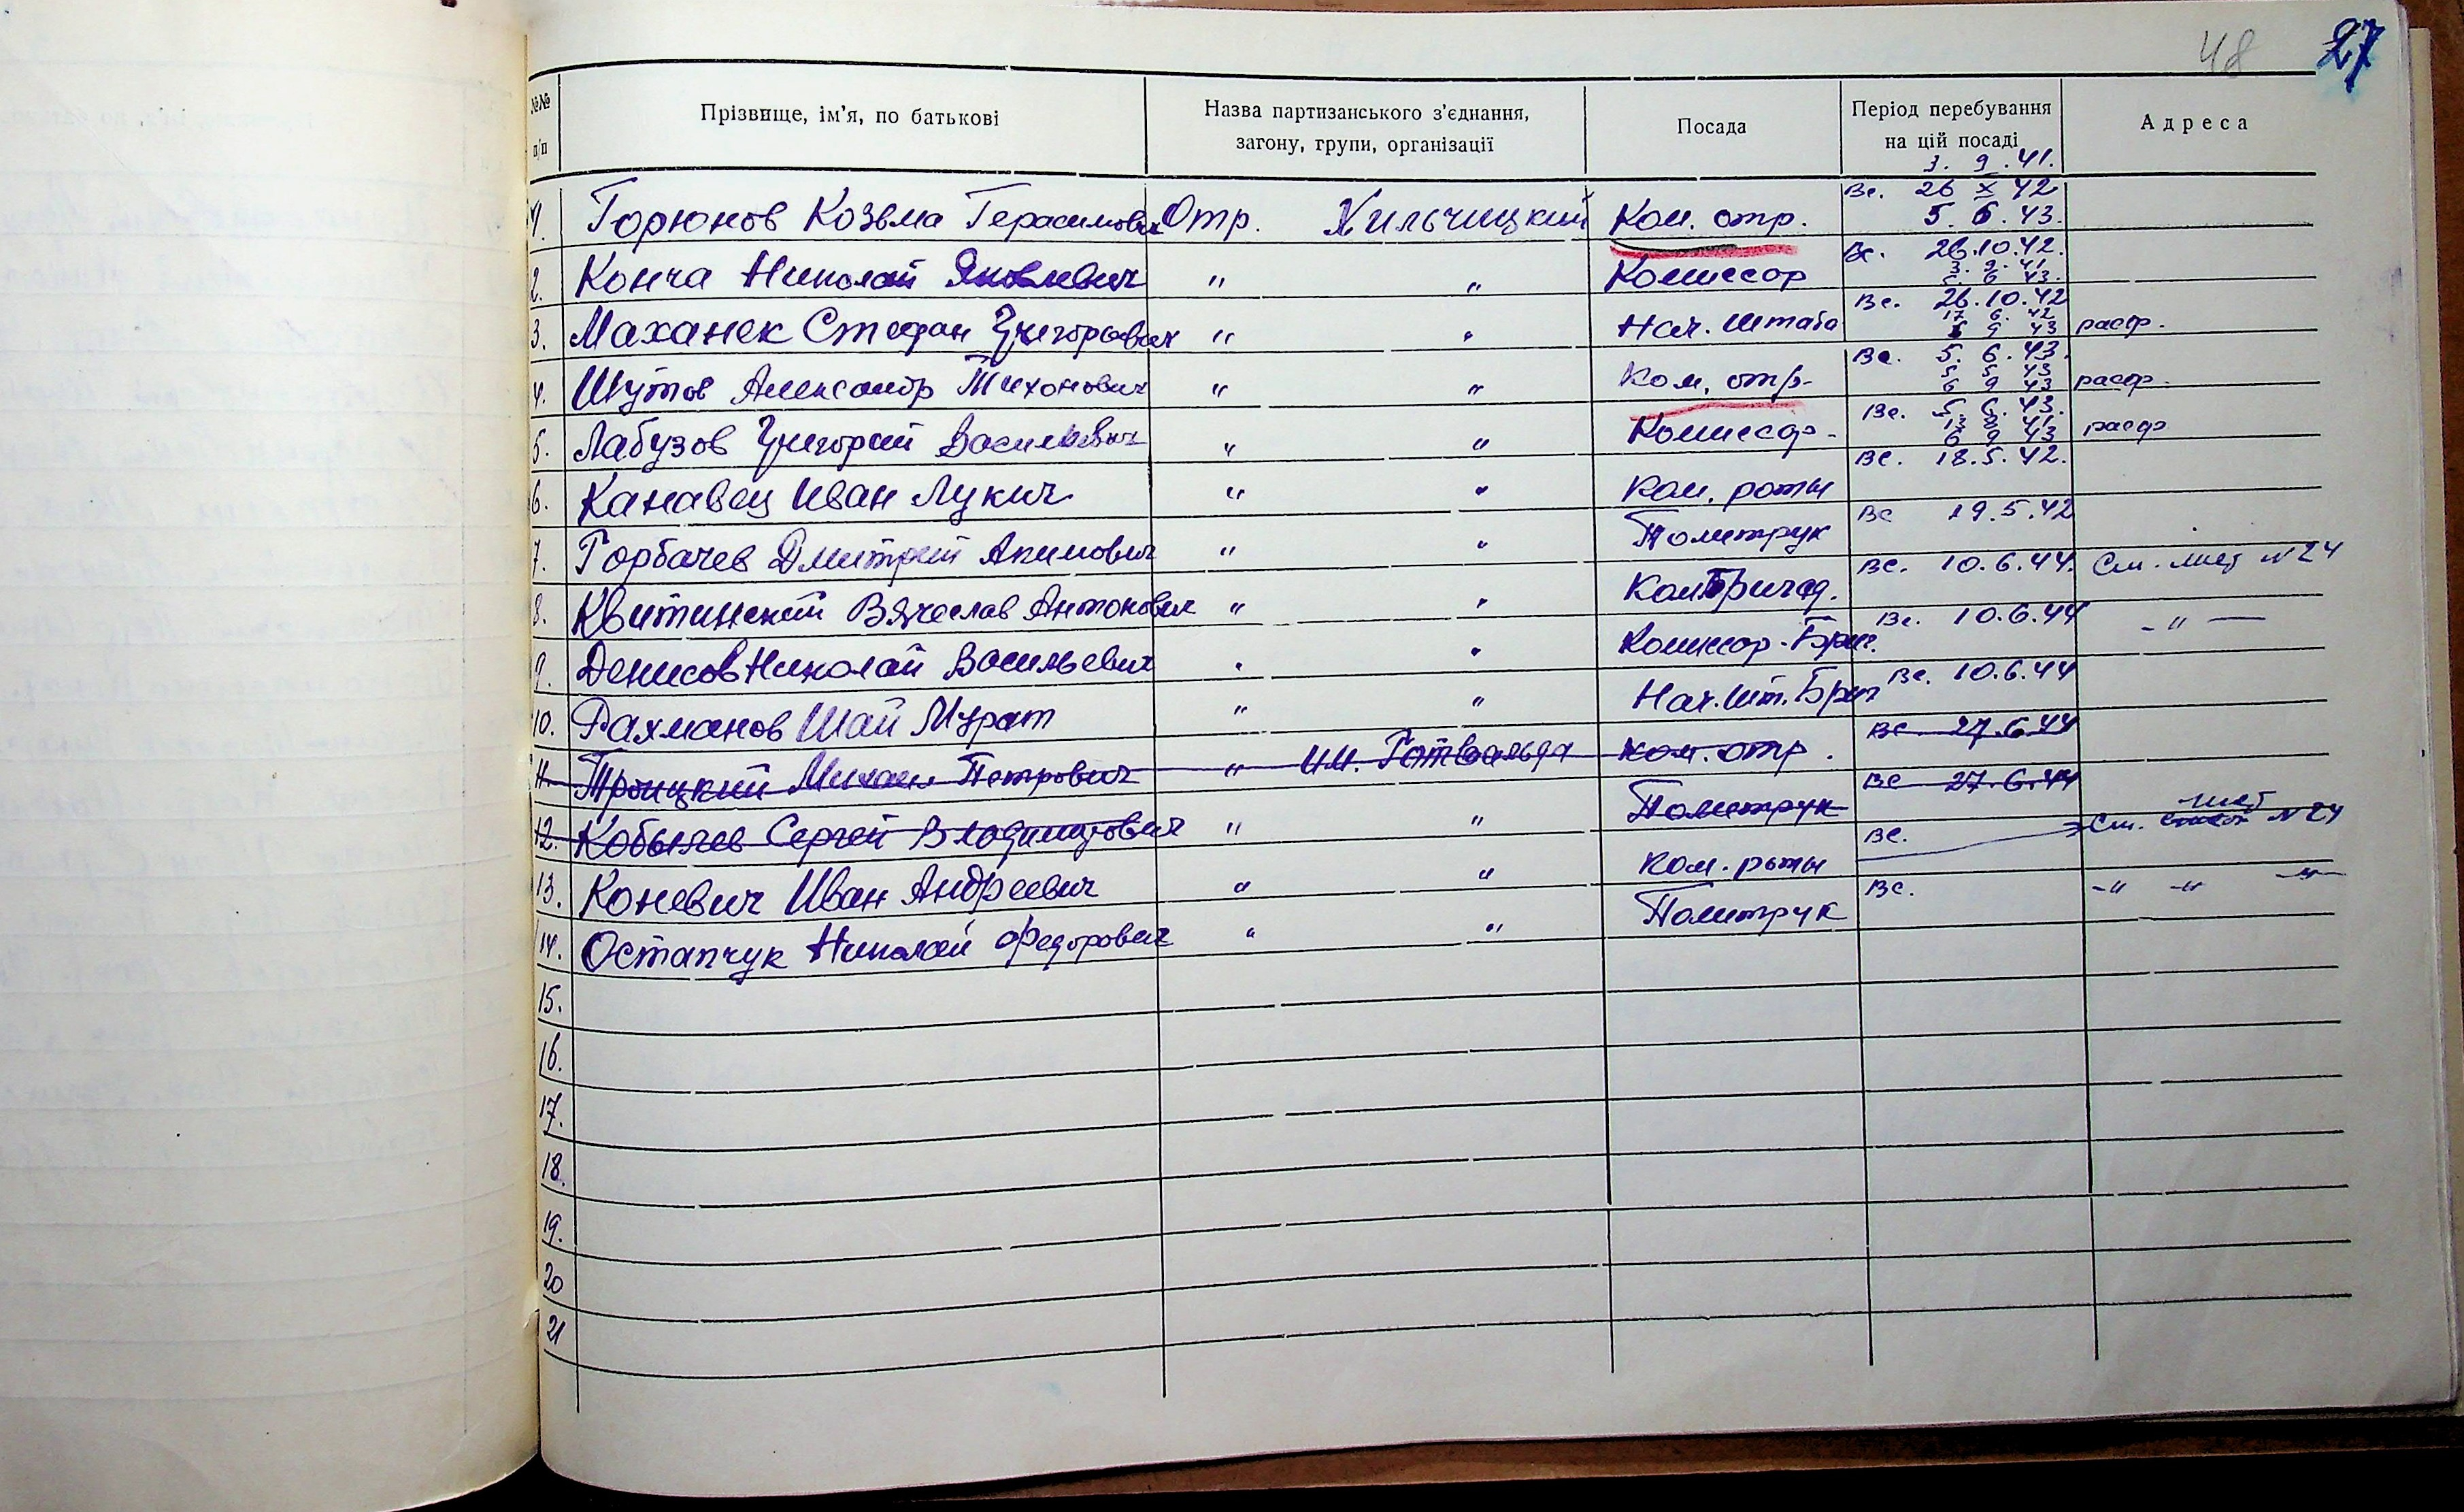 48 27
№№ п/п Прізвище, ім'я, по батькові Назва партизанського з'єднання, загону, групи, організації Посада Період перебування на цій посаді Адреса
3. 9. 41.
1. Горюнов Козьма Герасимович Отр. Хильчицкий Ком. отр. Вс. 26 X 42
5. 6. 43.
2. Конча Николай Яковлевич " " Комиссар Вс. 26.10.42.
3. 9. 41
5 6 43.
3. Маханек Стефан Григорьевич " " Нач. штаба Вс. 26.10.42
17 6. 42
5 9 43 расф.
4. Шутов Александр Тихонович " " Ком. отр. Вс. 5. 6. 43.
5 5 43
6 9 43 расф.
5. Лабузов Григорий Васильевич " " Комиссар. Вс. 5. 6. 43.
13 8 41
6 9 43 расф
6. Канавец Иван Лукич " " Ком. роты Вс. 18.5.42.
7. Горбачев Дмитрий Акимович " " Политрук Вс 19.5.42
8. Квитинский Вячеслав Антонович " " Ком Бригад. Вс. 10.6.44. См. лист №24
9. Денисов Николай Васильевич " " Комиссар-Бриг. Вс. 10.6.44 - " -
10. Рахманов Шай Мурат " " Нач. шт. Бриг Вс. 10.6.44
11. Троицкий Михаил Петрович " им. Готвальда ком. отр. Вс 27.6.44
12. Кобылев Сергей Владимирович " " Политрук Вс 27.6.44
13. Коневич Иван Андреевич " " Ком. роты Вс. См. лист №24
14. Остапчук Николай Федорович " " Политрук Вс. -" -" -"-
15.
16.
17.
18.
19.
20
21